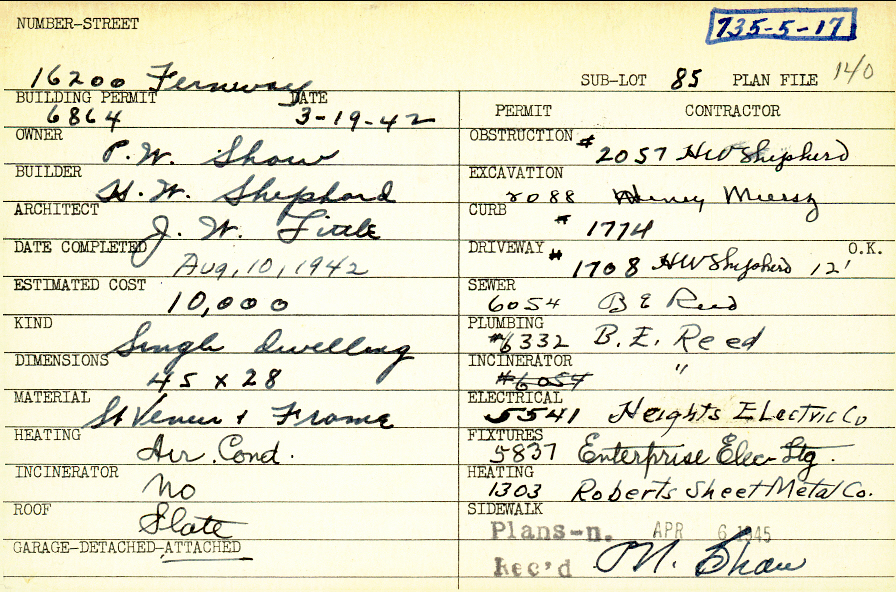 NUMBER-STREET
735-5-17
16200 Fernway
SUB-LOT 85 PLAN FILE 140
BUILDING PERMIT DATE
6864 3-19-42
OWNER
P.W. Shaw
BUILDER
H.W. Shephard
ARCHITECT
J. W. Little
DATE COMPLETED
Aug, 10, 1942
ESTIMATED COST
10,000
KIND
Single dwelling
DIMENSIONS
45 x 28
MATERIAL
St Veneer & Frame
HEATING
Air. Cond.
INCINERATOR
No
ROOF
Slate
GARAGE-DETACHED-ATTACHED
PERMIT CONTRACTOR
OBSTRUCTION
# 2057 HW Shepherd
EXCAVATION
2088 Henry
CURB
# 1774
DRIVEWAY O.K.
# 1708 HW Shepherd 12'
SEWER
6054 B E Reed
PLUMBING
#6332 B. E. Reed
INCINERATOR
#6054 "
ELECTRICAL
5541 Heights Electric Co
FIXTURES
5837 Enterprise Elec
HEATING
1303 Roberts Sheet Metal Co.
SIDEWALK
Plans-n. APR 6 1945
Rec'd Shaw